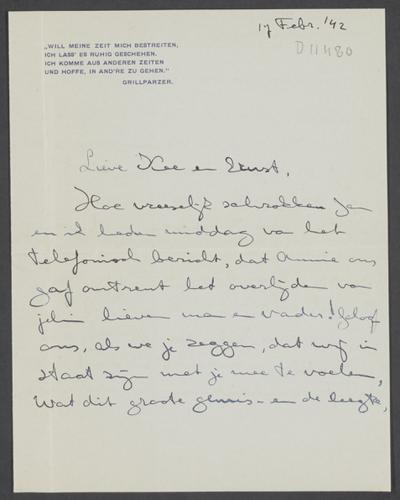 17 Febr. '42
D 11480
„WILL MEINE ZEIT MICH BESTREITEN,
ICH LASS' ES RUHIG GESCHEHEN.
ICH KOMME AUS ANDEREN ZEITEN
UND HOFFE, IN AND'RE ZU GEHEN."
GRILLPARZER.
Lieve Koe en Ernst,
Hoe vreeselijk schrokken Jan
en ik heden middag van het
telefonisch bericht, dat Annie ons
gaf omtrent het overlijden van
lieven man en vader! Geloof
ons, als we je zeggen, dat wij in
staat zijn met je mee te voelen,
Wat dit groote gemis en de leegte,